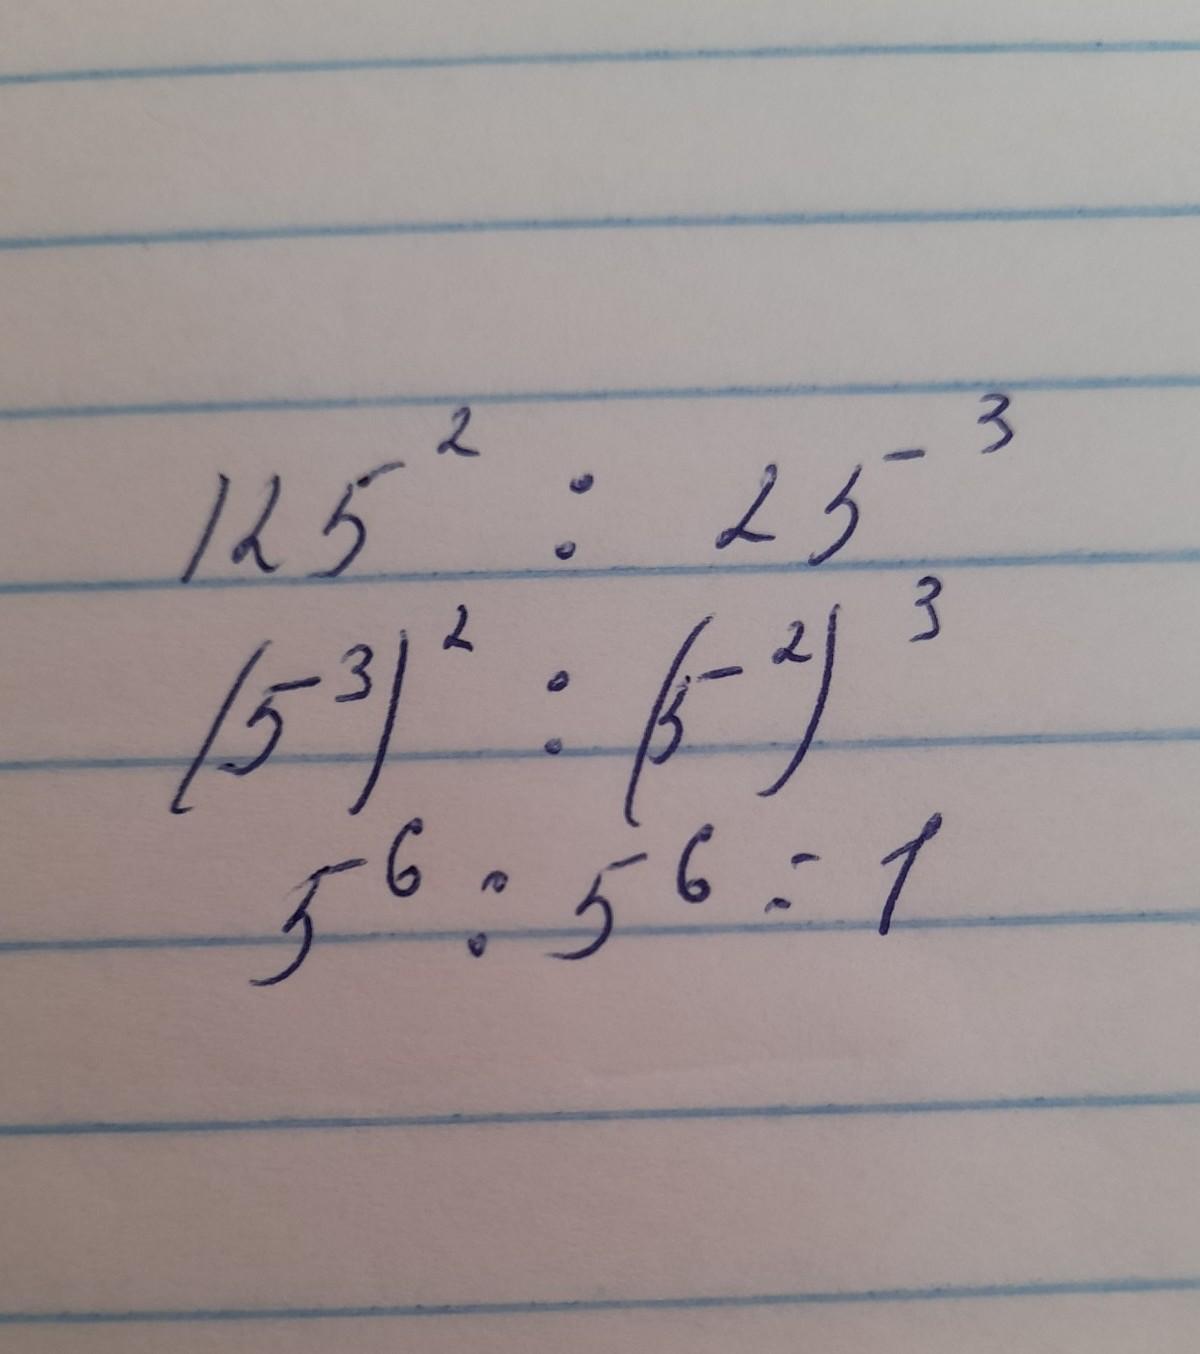 125² : 25³
(5³)² : (5²)³
5⁶ : 5⁶ = 1